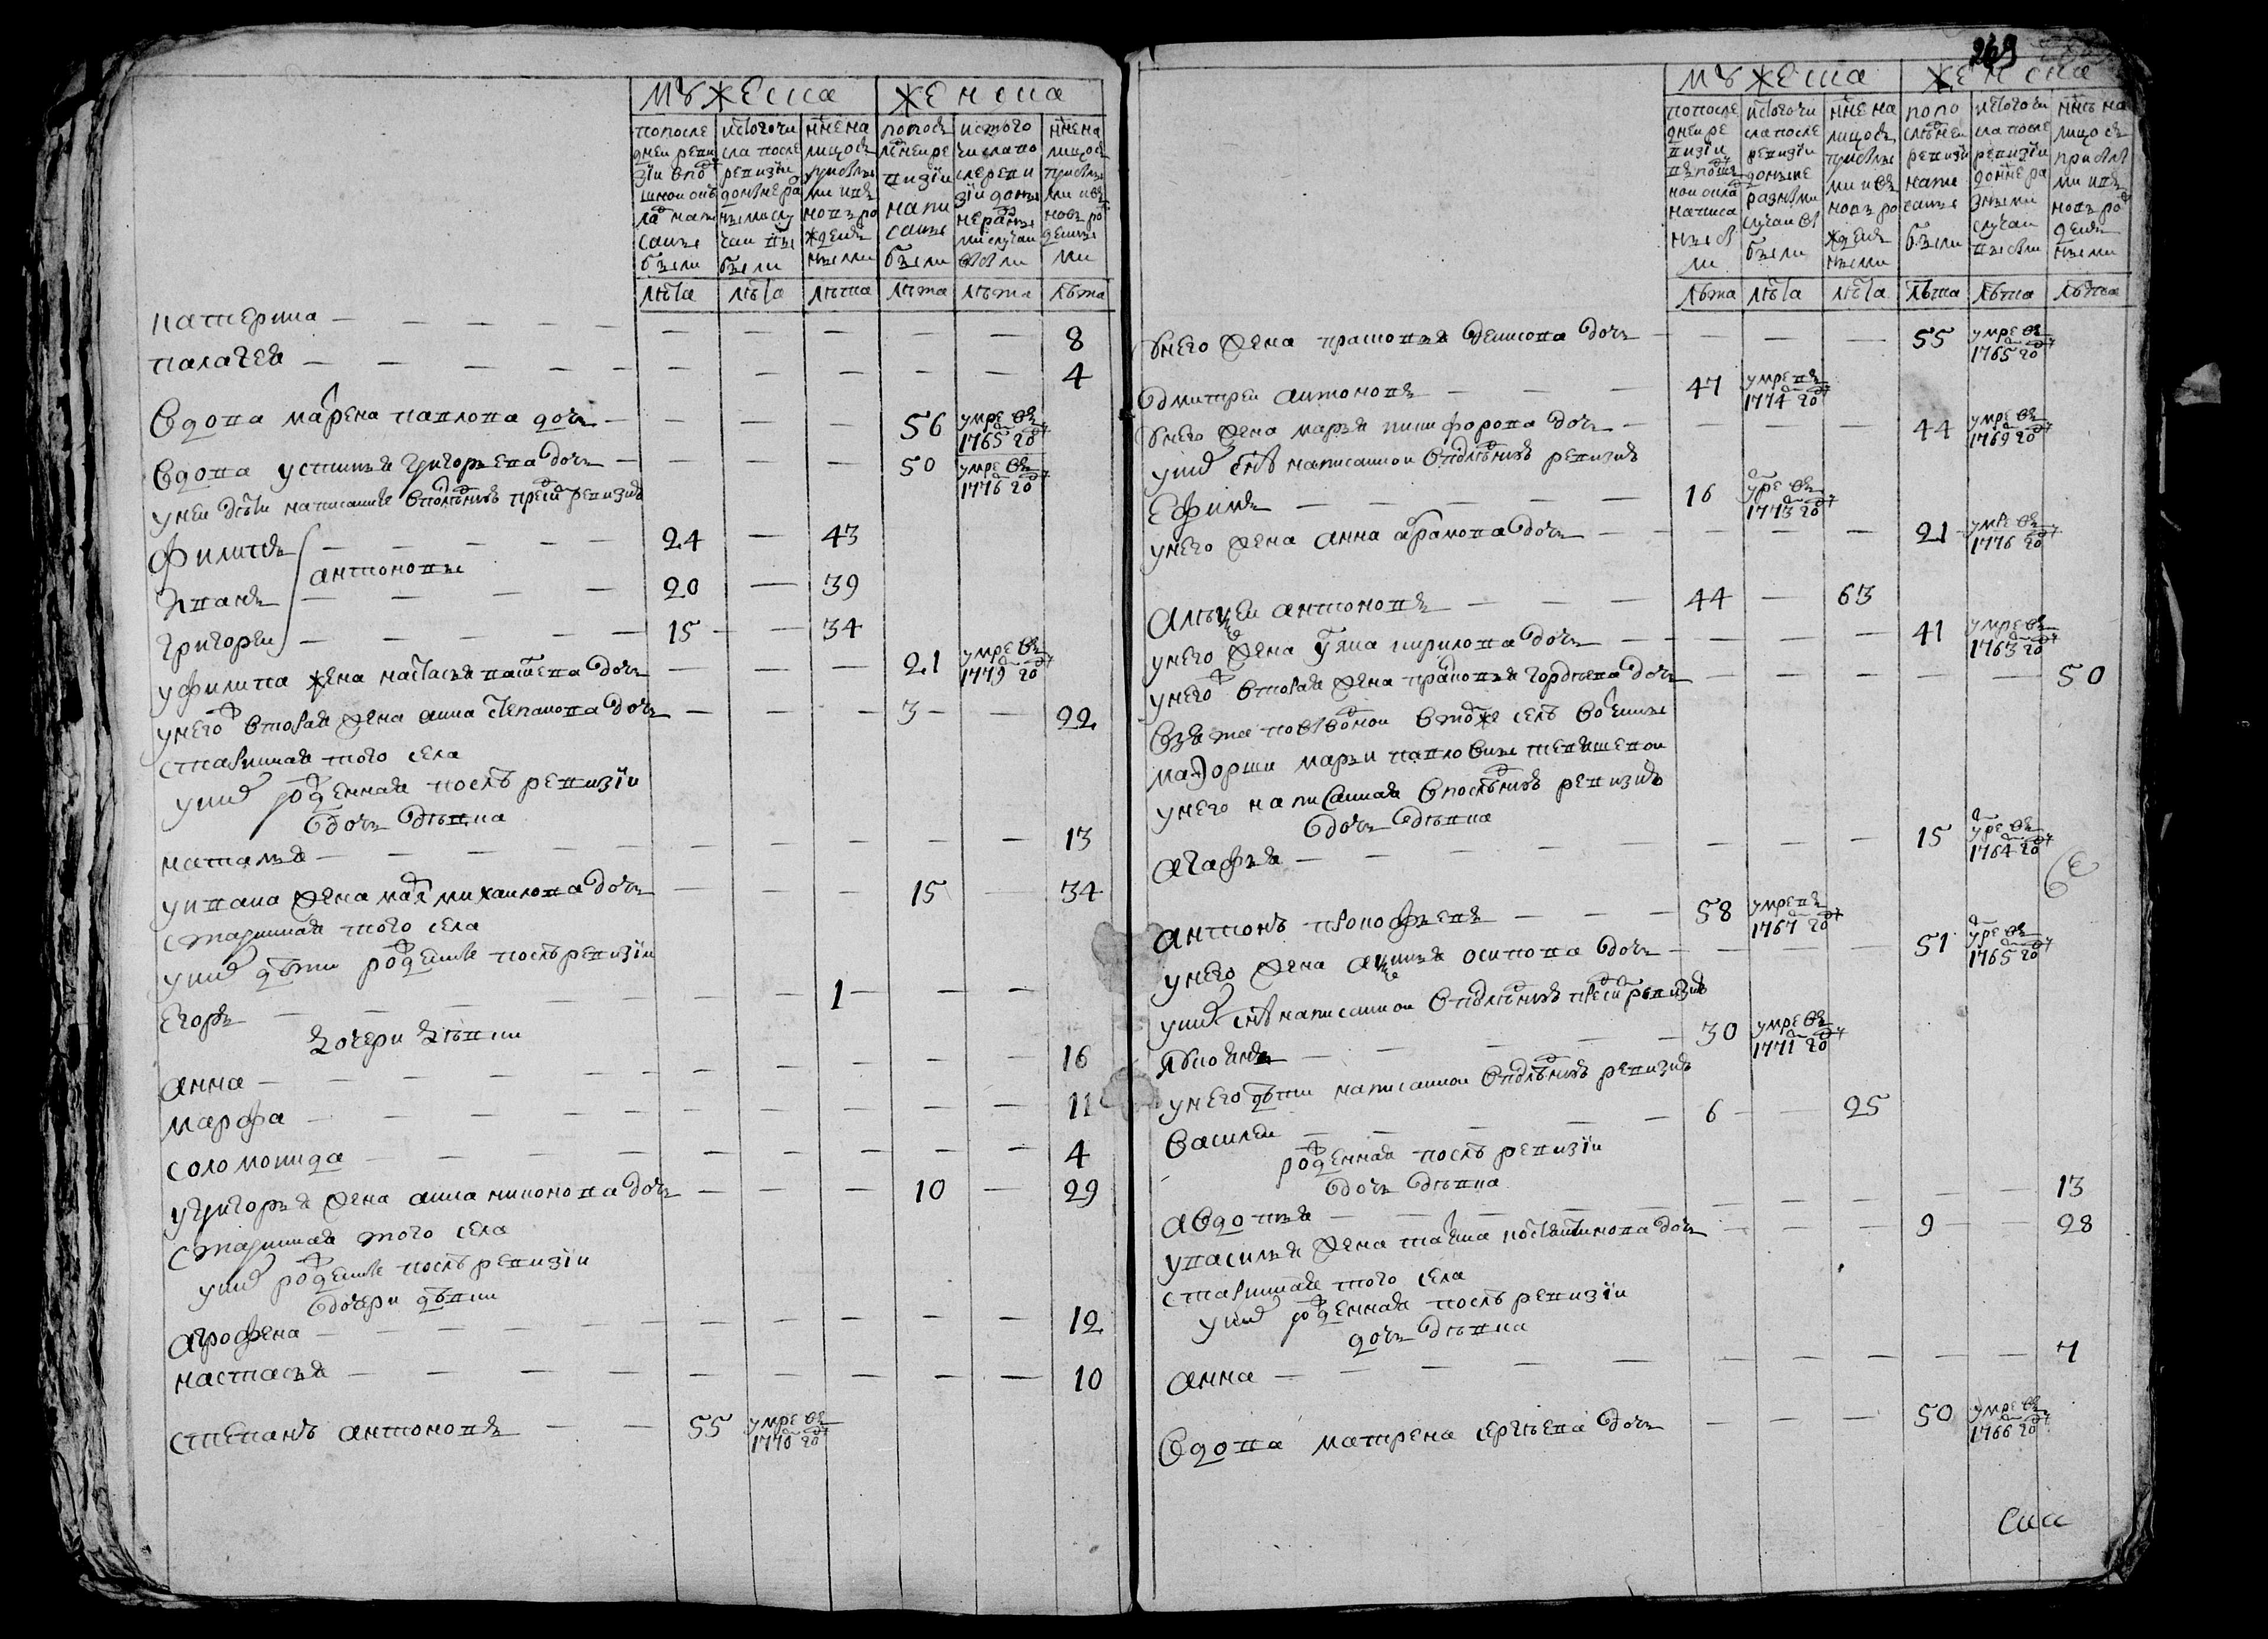 мужеска
женска
попоследнеи ревизiи в подушной оклад написаны были
ис того числа после ревизiи до ныне разными случаи выбыли
ныне на лицо с прибылыми и вновь рожденными
по последнеи ревизiи написаны были
ис того числа по сле ревизiи до ныне разными случаи выбыли
ныне на лицо с прибылыми и вновь рожденными
лѣта лѣта лѣта лѣта лѣта лѣта
катерина — — — — — — 8
палагея — — — — — — 4
вдова марена павлова дочь — — — 56 умре въ 1765 году
вдова устинья григорьева дочь — — — 50 умре въ 1776 году
у неи дети написанные в последнюю пред сим ревизию
филипъ 24 — 43
антоновы
иванъ 20 — 39
григореи 15 — 34
у филипа жена настасья дочь — — — 21 умре въ 1779 году
у него ж вторая жена анна степанова дочь — — — 3 — 22
старинная того села
у них рожденная после ревизiи
дочь девка
наталья — — — — — — 13
у ивана жена марья михаилова дочь — — — 15 — 34
старинная того села
у них дети рожденные после ревизiи
егоръ — — 1 — — —
дочери девки
анна — — — — — — 16
марфа — — — — — — 11
соломонида — — — — — — 4
у григорья жена анна никонова дочь — — — 10 — 29
старинная того села
у них рожденные после ревизiи
дочери девки
агрофена — — — — — — 12
настасья — — — — — — 10
степанъ антоновъ — — 55 умре въ 1770 году
269
мужеска
женска
по последнеи ревизiи в подушной оклад написаны были
ис того числа после ревизiи до ныне разными случаи выбыли
ныне на лицо с прибылыми и вновь рожденными
по последнеи ревизiи написаны были
ис того числа после ревизiи до ныне разными случаи выбыли
ныне на лицо с прибылыми и вновь рожденными
лѣта лѣта лѣта лѣта лѣта лѣта
у него жена прасковья денисова дочь — — — 55 умре въ 1765 году
дмитреи антоновъ — — — 47 умре въ 1774 году
у него жена марья никифорова дочь — — — 44 умре въ 1769 году
у них сынъ написанной в последнюю ревизию
ефимъ — — — 16 умре въ 1773 году
у него жена анна абрамова дочь — — — 21 умре въ 1776 году
алексеи антоновъ — — — 44 — 63
у него жена ульяна кирилова дочь — — — 41 умре въ 1763 году
у него ж вторая жена прасковья гордеева дочь — — — — — 50
взята по выводной в том же селе
маиорши марьи павловны
у него написанная в последнюю ревизию
дочь девка
агафья — — — — — — 15 умре въ 1764 году
антонъ прокофьевъ — — — 58 умре въ 1767 году
у него жена аксинья осипова дочь — — — 51 умре въ 1765 году
у них сынъ написанной в последнюю пред сим ревизию
— — — 30 умре въ 1771 году
у него дети написанной в последнюю ревизию
василеи — — — 6 — 25
рожденная после ревизiи
дочь девка
авдотья — — — — — — 13
у василья жена татьяна костантинова дочь — — — 9 — 28
старинная того села
у них рожденная после ревизiи
дочь девка
анна — — — — — — 7
вдова матрена сергеева дочь — — — 50 умре въ 1766 году